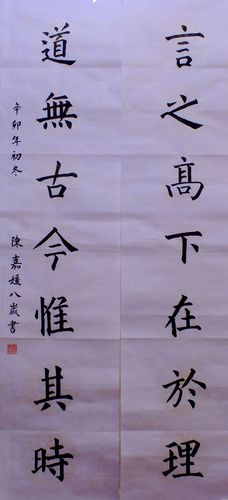 言之高下在於理
道無古今惟其時
辛卯年初冬
陳嘉媛八歲書